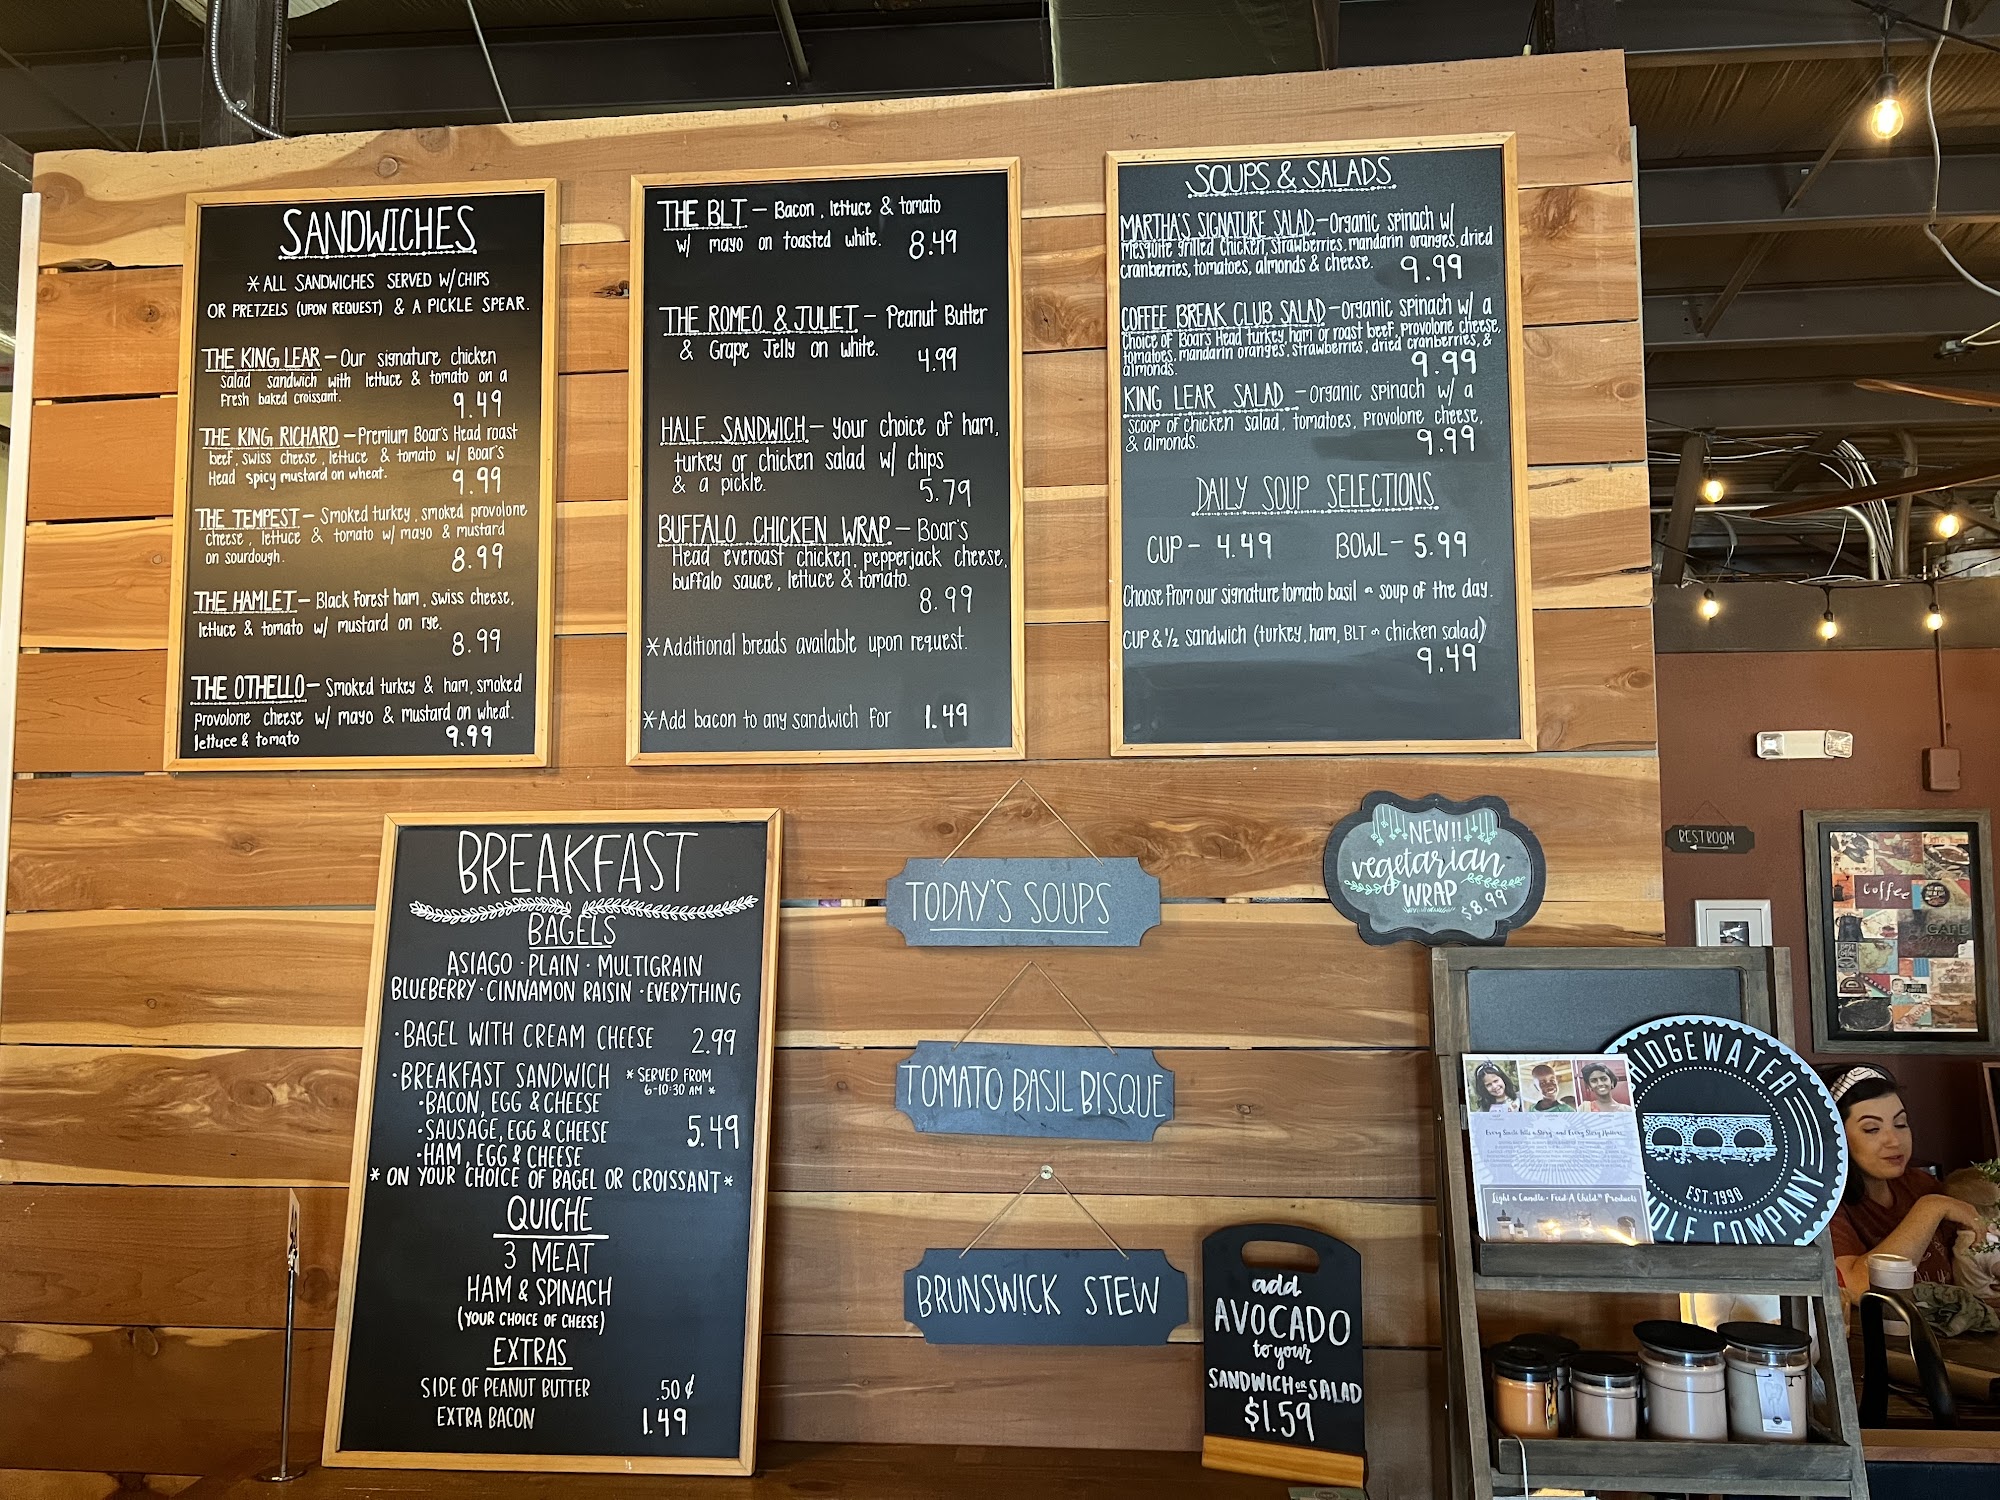 SANDWICHES
*ALL SANDWICHES SERVED W/CHIPS
OR PRETZELS (UPON REQUEST) & A PICKLE SPEAR.
THE KING LEAR – Our signature chicken
salad sandwich with lettuce & tomato on a
Fresh baked croissant. 9.49
THE KING RICHARD – Premium Boar's Head roast
beef, swiss cheese, lettuce & tomato w/ Boar's
Head spicy mustard on wheat. 9.99
THE TEMPEST – Smoked turkey, smoked provolone
cheese, lettuce & tomato w/ mayo & mustard
on sourdough. 8.99
THE HAMLET – Black Forest ham, swiss cheese,
lettuce & tomato w/ mustard on rye.
8.99
THE OTHELLO – Smoked turkey & ham, smoked
Provolone cheese w/ mayo & mustard on wheat.
lettuce & tomato 9.99
THE BLT – Bacon, lettuce & tomato
w/ mayo on toasted white. 8.49
THE ROMEO & JULIET – Peanut Butter
& Grape Jelly on white. 4.99
HALF SANDWICH – your choice of ham,
turkey or chicken salad w/ chips
& a pickle. 5.79
BUFFALO CHICKEN WRAP – Boar's
Head everoast chicken, pepperjack cheese,
buffalo sauce, lettuce & tomato.
8.99
*Additional breads available upon request.
*Add bacon to any sandwich for 1.49
SOUPS & SALADS
MARTHA'S SIGNATURE SALAD – Organic spinach w/
mesquite grilled chicken, strawberries, mandarin oranges, dried
cranberries, tomatoes, almonds & cheese. 9.99
COFFEE BREAK CLUB SALAD – Organic spinach w/ a
choice of Boar's Head turkey, ham or roast beef, provolone cheese,
tomatoes, mandarin oranges, strawberries, dried cranberries, &
almonds. 9.99
KING LEAR SALAD – Organic spinach w/ a
scoop of chicken salad, tomatoes, provolone cheese,
& almonds. 9.99
DAILY SOUP SELECTIONS
CUP – 4.49 BOWL – 5.99
Choose from our signature tomato basil or soup of the day.
CUP & 1/2 sandwich (turkey, ham, BLT or chicken salad)
9.49
BREAKFAST
BAGELS
ASIAGO · PLAIN · MULTIGRAIN
BLUEBERRY · CINNAMON RAISIN · EVERYTHING
·BAGEL WITH CREAM CHEESE 2.99
·BREAKFAST SANDWICH *SERVED FROM
6-10:30 AM *
·BACON, EGG & CHEESE
·SAUSAGE, EGG & CHEESE 5.49
·HAM, EGG & CHEESE
*ON YOUR CHOICE OF BAGEL OR CROISSANT*
QUICHE
3 MEAT
HAM & SPINACH
(YOUR CHOICE OF CHEESE)
EXTRAS
SIDE OF PEANUT BUTTER .50¢
EXTRA BACON 1.49
TODAY'S SOUPS
TOMATO BASIL BISQUE
BRUNSWICK STEW
NEW!!
vegetarian
WRAP
$8.99
add
AVOCADO
to your
SANDWICH or SALAD
$1.59
RESTROOM
Coffee
CAFE
Every Smile tells a Story and Every Story Matters
Light a Candle · Feed A Child™ Products
EST. 1998
COMPANY